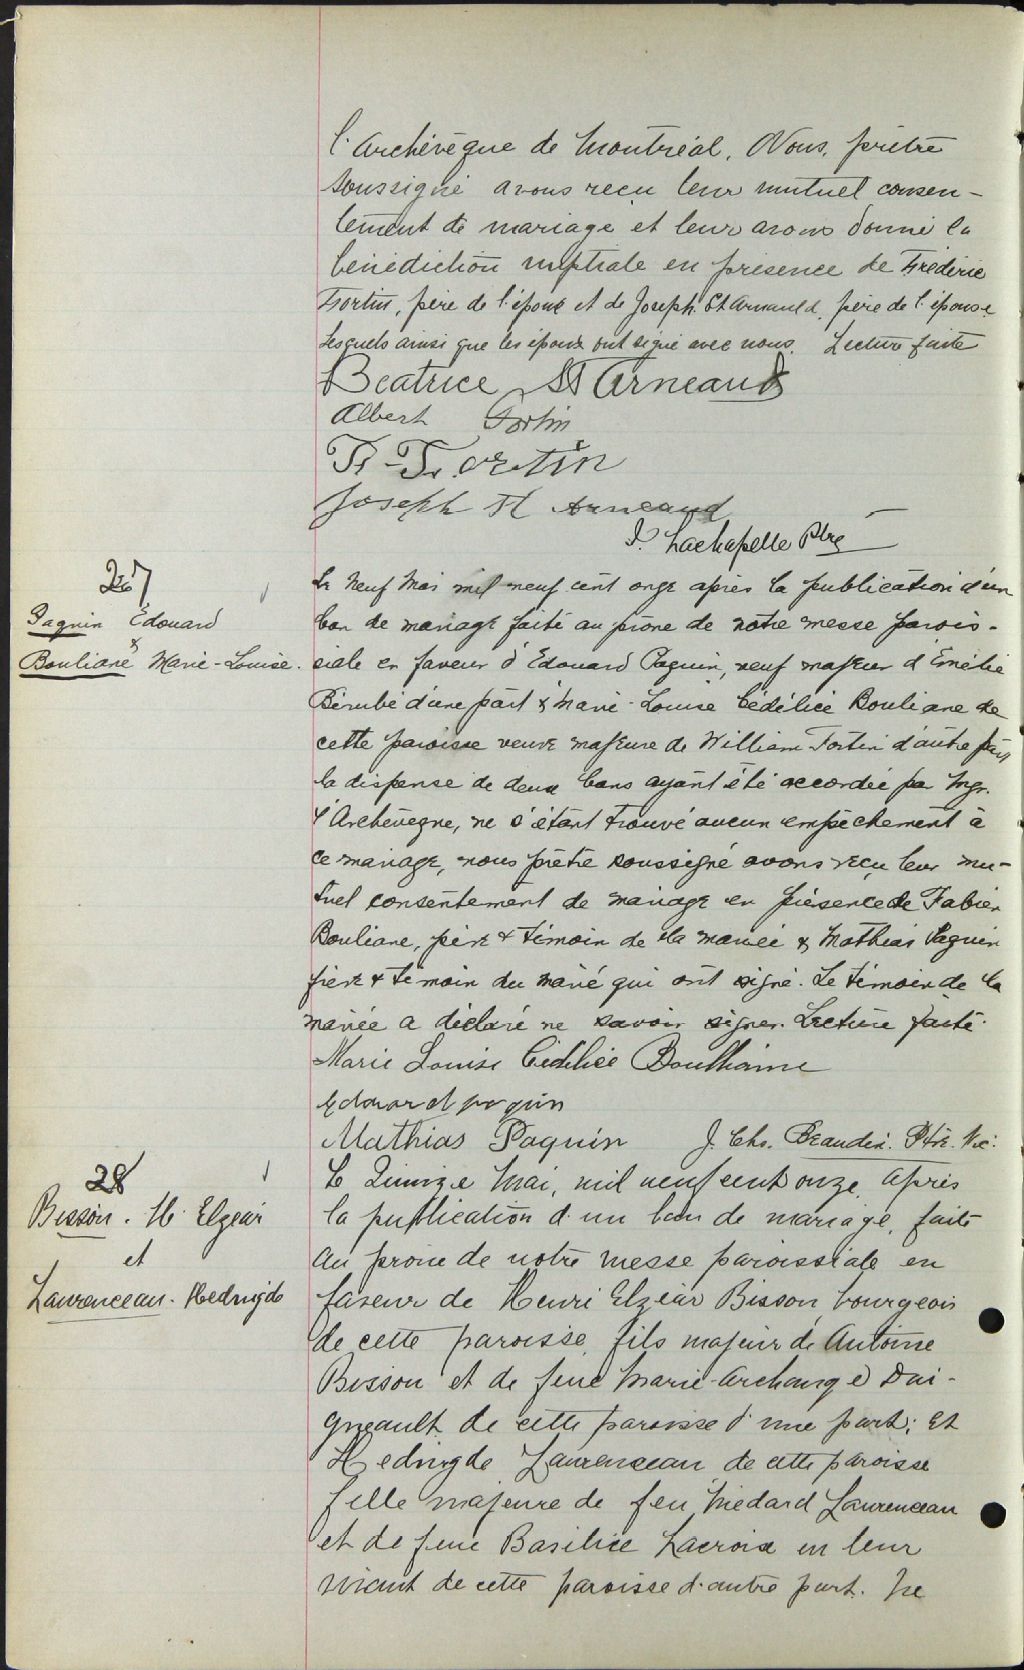 l'Archévêque de Montréal. Nous, prêtre
soussigné avons reçu leur mutuel consen-
tement de mariage et leur avons donné la
bénédiction nuptiale en présence de Fréderic
Fortin, père de l'époux et de Joseph St Arnauld, père de l'épouse
lesquels ainsi que les époux ont signé avec nous. Lecture faite
Beatrice St Arneault
Albert Fortin
F. Fortin
Joseph St Arneaud
J. Lachapelle Ptre
27
Paquin Édouard
&
Bouliane Marie-Louise.
Le neuf mai mil neuf cent onze après la publication d'un
ban de mariage faite au prône de notre messe parois-
siale en faveur d'Edouard Paquin, veuf majeur d'Emélie
Bérubé d'une part & Marie-Louise Cédélice Bouliane de
cette paroisse veuve majeure de William Fortin d'autre part
la dispense de deux bans ayant été accordée par Mgr.
l'Archevêque, ne s'étant trouvé aucun empêchement à
ce mariage, nous prêtre soussigné avons reçu leur mu-
tuel consentement de mariage en présence de Fabien
Bouliane, père & témoin de la mariée & Mathias Paquin
frère & témoin du marié qui ont signé. Le témoin de la
mariée a déclaré ne savoir signer. Lecture faite.
Marie Louise Cédélice Boulliaine
Edouard paquin
Mathias Paquin J. Chs. Beaudin. Ptre. Vic.
28
Bisson. H. Elzéar
et
Laurenceau. Hedwigde
Le Quinze Mai, mil neuf cent onze, après
la publication d'un ban de mariage, faite
au prône de notre messe paroissiale en
faveur de Henri Elzéar Bisson, bourgeois
de cette paroisse, fils majeur de Antoine
Bisson et de feue Marie-Archange Dai-
gneault de cette paroisse d'une part; Et
Hedwigde Laurenceau de cette paroisse
fille majeure de feu Médard Laurenceau
et de feue Basilice Lacroix en leur
vivant de cette paroisse d'autre part. Ne